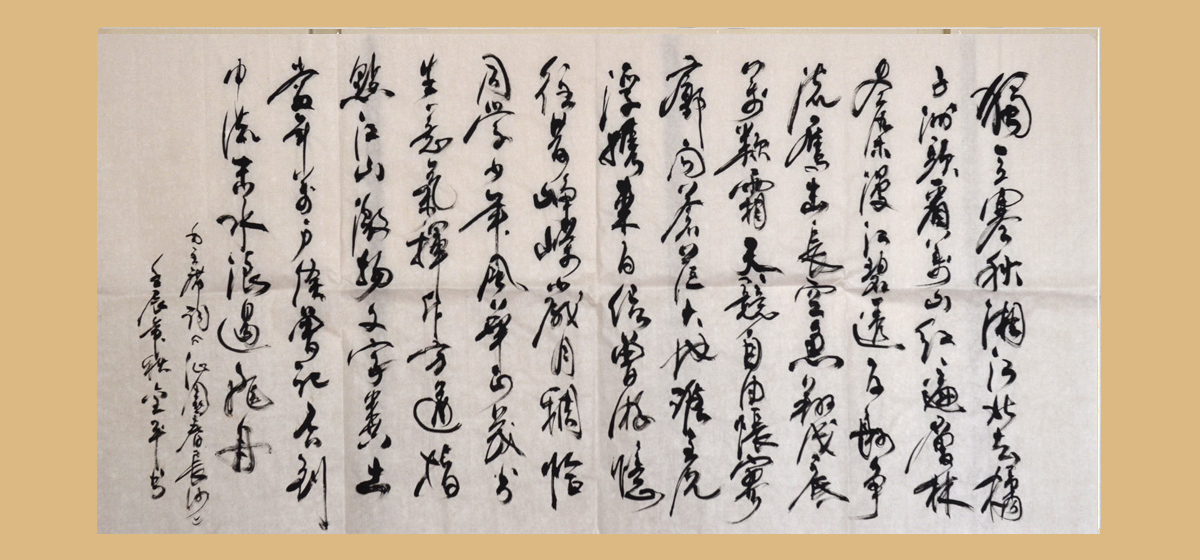 獨立寒秋湘江北去橘
子洲頭看萬山红遍層林
盡染漫江碧透百舸争
流鷹击長空魚翔浅底
萬類霜天競自由悵寥
廓问蒼茫大地誰主沉
浮攜來百侣曾游憶
往昔崢嶸歲月稠恰
同學少年風華正茂书
生意氣揮斥方遒指
點江山激揚文字糞土
當年萬户侯曾記否到
中流击水浪遏飛舟
毛主席詞沁園春長沙
壬辰年秋金平书